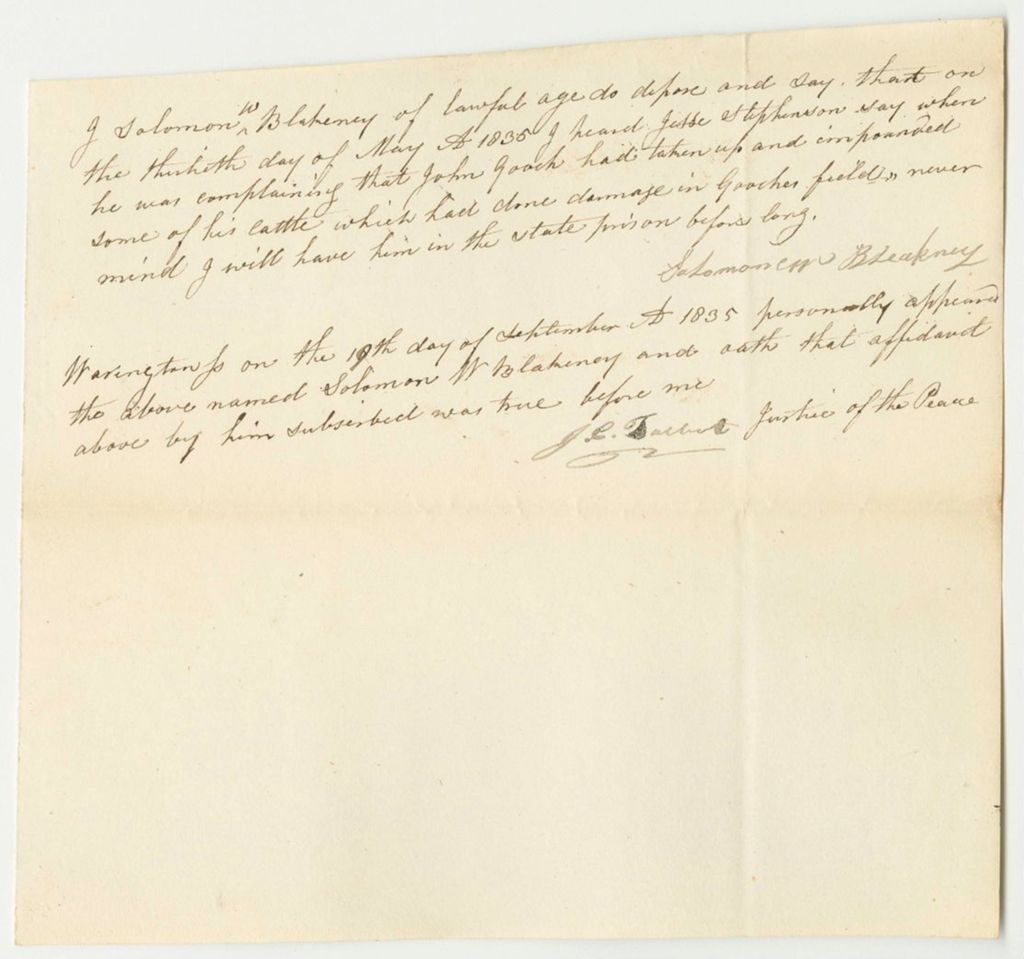 I Solomon ^W Blakeney of lawful age do depose and say. that on
the thirtieth day of May A 1835 I heard Jesse Stephenson say when
he was complaining that John Gooch had taken up and impounded
some of his cattle which had done damage in Gooches field, never
mind I will have him in the state prison before long.
Solomon W Bleakney
Warington ss on the 19th day of September A 1835 personally appeared
the above named Solomon W Blakeney and oath that affidavit
above by him subscribed was true before me
J. C. Talbot Justice of the Peace